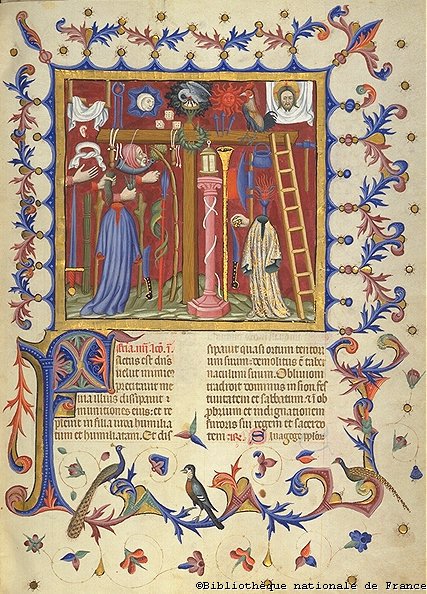 Feria iiij. lco. i.
Factus est dñs
velut inimic
precipitavit me
nia illius dissipavit
munitiones eius. et re
plevit in filia iuda humilia
tum et humiliatam. Et dis
sipavit quasi ortum tentori
um suum. demolitus est taber
naculum suum. Oblivioni
tradidit dominus in syon. fes
tivitatem et sabbatum. et ob
probrium et indignationem
furoris sui regem et sacerdo
tem
©Bibliothèque nationale de France